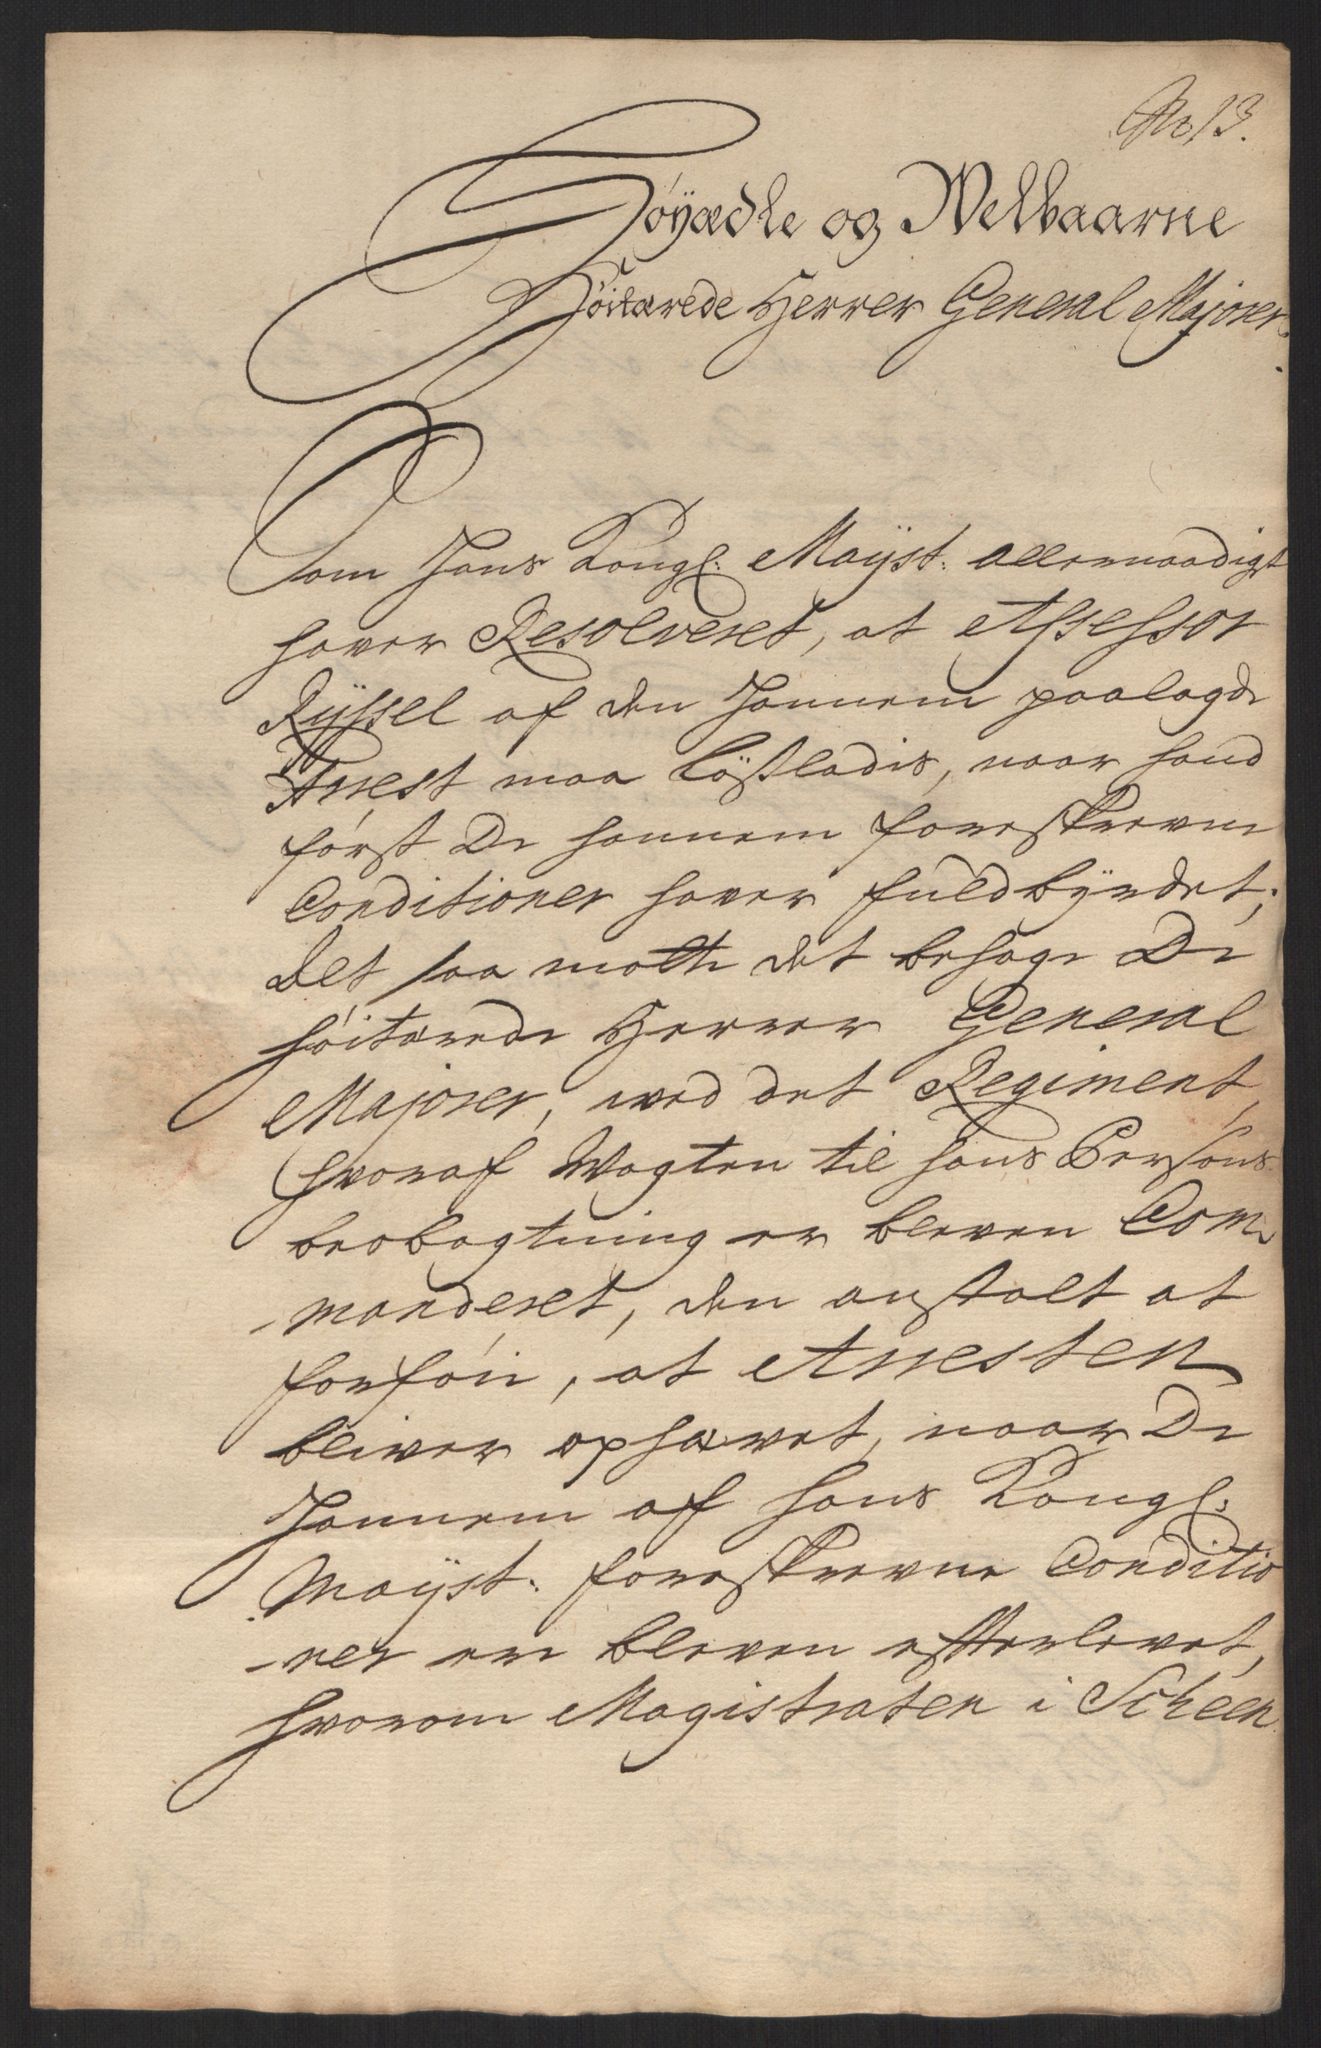 No 13.
Høÿædle og Welbaarne
Høitærede Herrer General Majorer.
Som Hans Kongl: Maÿst: allernaadigst
haver Resolveret, at Assessor
Rÿssel af den hannem paalagde
Arrest maa løsladis, naar hand
først De hannem foreskrevne
Conditioner haver fuldbÿrdet;
Det saa motte det behage De
høitærede Herrer General
Majorer, ved det Regiment,
hvoraf Wagten til hans Persons
beobagtning er bleven Com-
manderet, den anstalt at
forføie, at Arresten
bliver ophævet, naar De
hannem af hans Kongl:
Maÿst: foreskrevne Conditio
ner ere bleven efterlevet,
hvorom Magistraten i Scheen